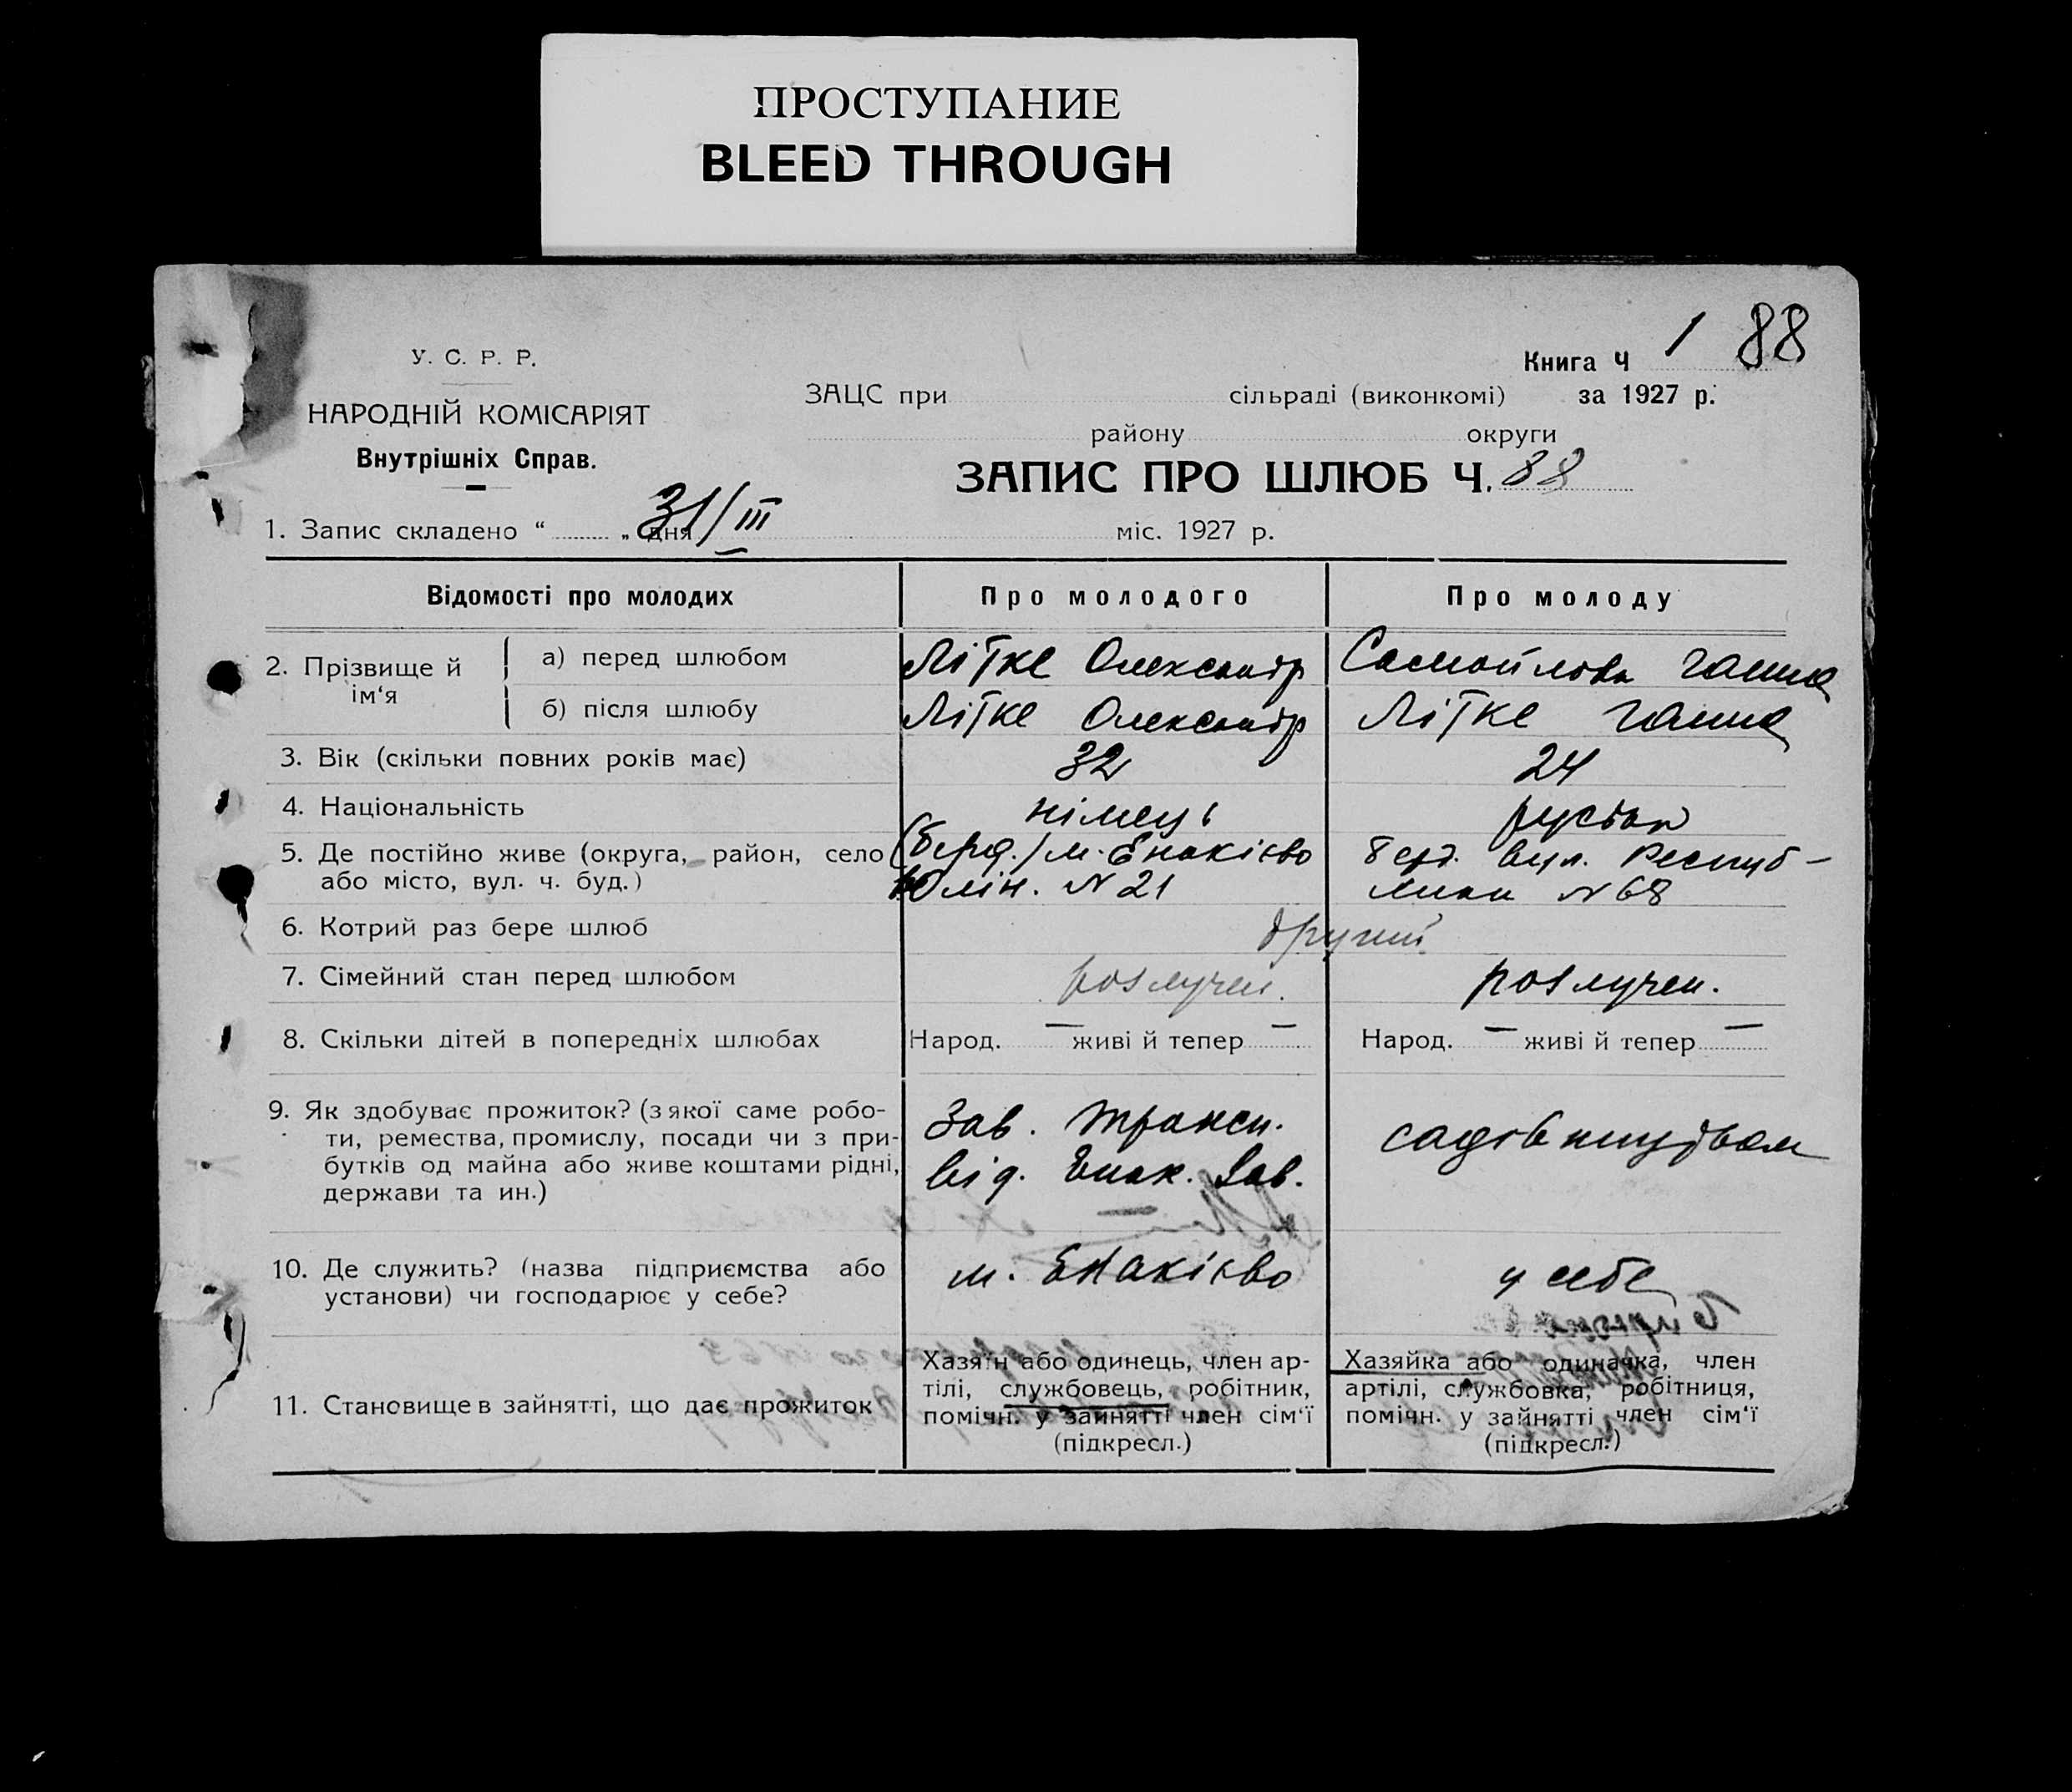 ПРОСТУПАНИЕ
BLEED THROUGH
1 88
У. С. Р. Р.
Книга Ч
НАРОДНІЙ КОМІСАРІЯТ
ЗАЦС при сільраді (виконкомі) за 1927 р.
Внутрішніх Справ.
району округи
ЗАПИС ПРО ШЛЮБ Ч. 88
1. Запис складено “ „ дня 31/III міс. 1927 р.
Відомості про молодих
Про молодого
Про молоду
2. Прізвище й ім‘я
а) перед шлюбом
Літке Олександр
Самойлова Ганна
б) після шлюбу
Літке Олександр
Літке Ганна
3. Вік (скільки повних років має)
32
24
4. Національність
німець
5. Де постійно живе (округа, район, село
або місто, вул. ч. буд.)
(Берд.) м. Енакієво
10 лін. N 21
Берд. вул. Респуб-
лики N 68
6. Котрий раз бере шлюб
другий
7. Сімейний стан перед шлюбом
розлучен.
розлучен.
8. Скільки дітей в попередніх шлюбах
Народ. — живі й тепер —
Народ. — живі й тепер —
9. Як здобуває прожиток? (з якої саме робо-
ти, ремества, промислу, посади чи з при-
бутків од майна або живе коштами рідні,
держави та ин.)
Зав. трансп.
від. Енак. Зав.
садівництвом
10. Де служить? (назва підприємства або
установи) чи господарює у себе?
м. Енакієво
у себе
11. Становище в зайнятті, що дає прожиток
Хазяїн або одинець, член ар-
тілі, службовець, робітник,
помічн. у зайнятті член сім‘ї
(підкресл.)
Хазяйка або одиначка, член
артілі, службовка, робітниця,
помічн. у зайнятті член сім‘ї
(підкресл.)